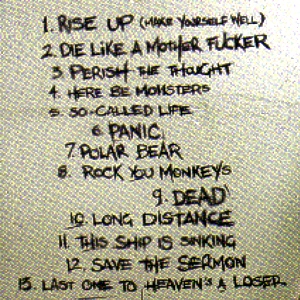 1. RISE UP (MAKE YOURSELF WELL)
2. DIE LIKE A MOTHER FUCKER
3. PERISH THE THOUGHT
4. HERE BE MONSTERS
5. SO-CALLED LIFE
6. PANIC
7. POLAR BEAR
8. ROCK YOU MONKEYS
9. DEAD
10. LONG DISTANCE
11. THIS SHIP IS SINKING
12. SAVE THE SERMON
13. LAST ONE TO HEAVEN'S A LOSER